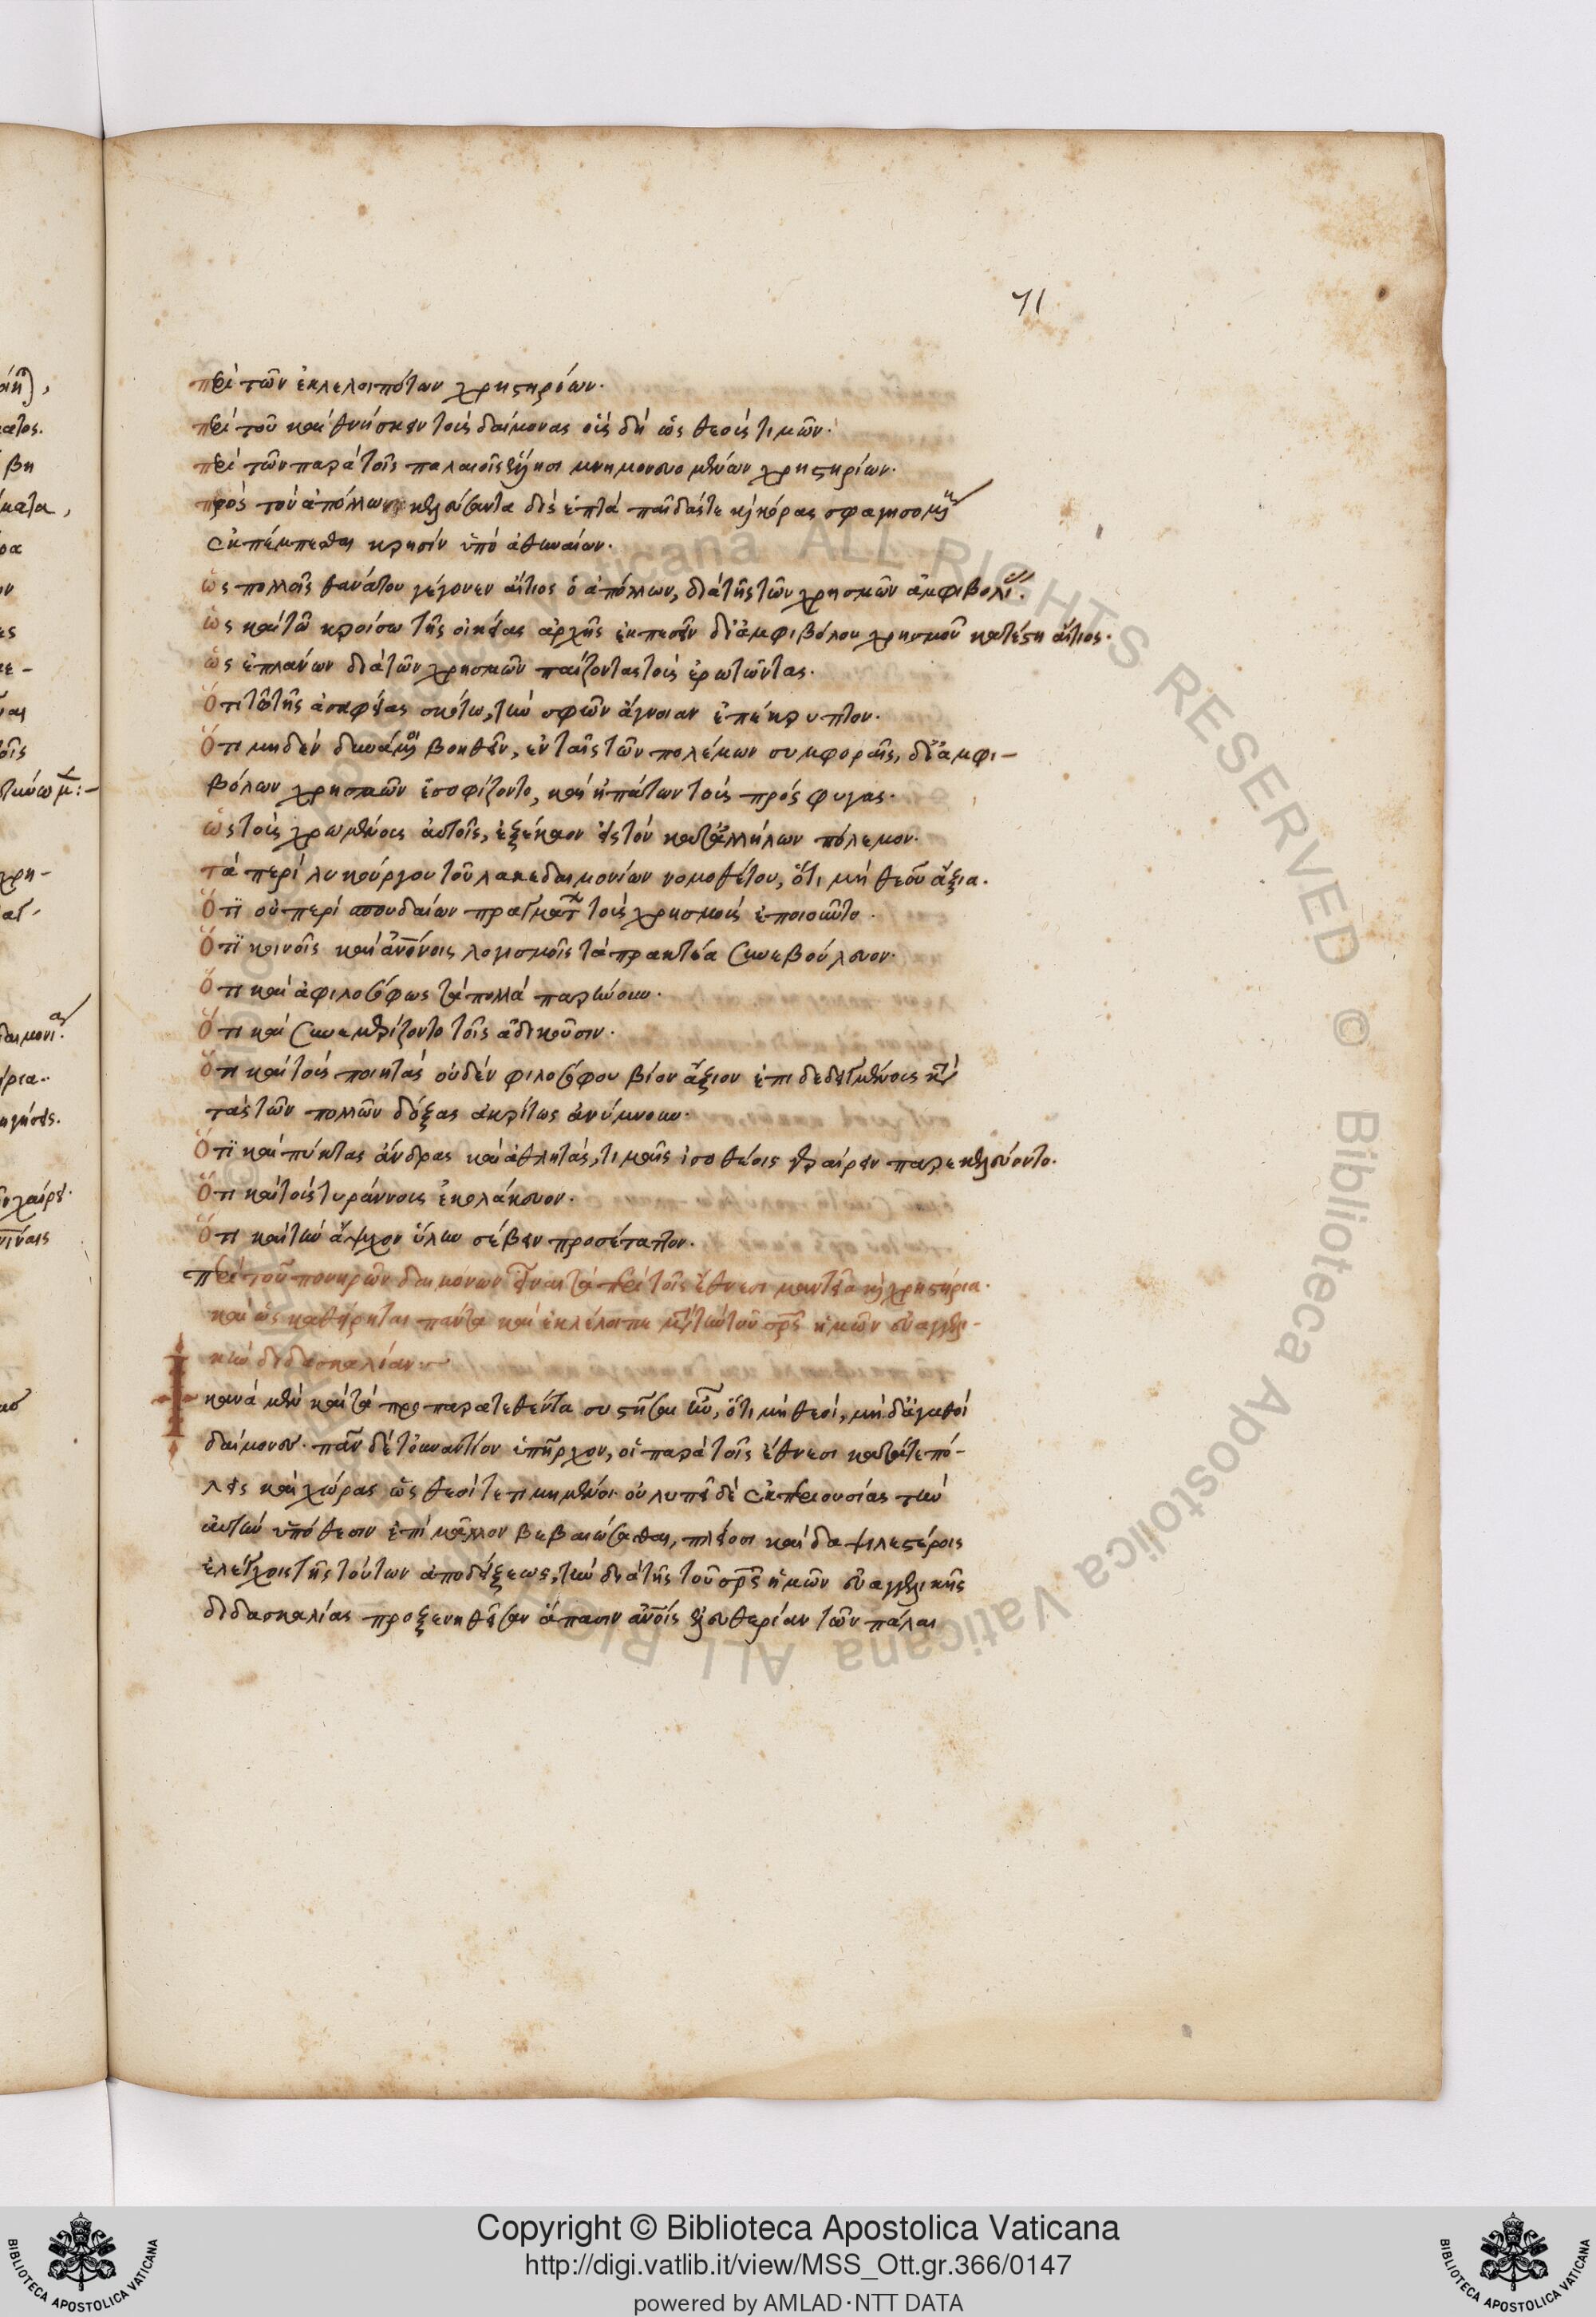 71
περὶ τῶν ἐκλελοιπότων χρηστηρίων.
περὶ τοῦ καὶ θνήσκειν τοὺς δαίμονας οὓς δὴ ὡς θεοὺς τιμῶν.
περὶ τῶν παρὰ τοῖς παλαιοῖς ἕλλησι μνημονευομένων χρηστηρίων.
πρὸς τὸν ἀπόλλωνα κελεύσαντα δὶς ἑπτὰ παῖδάς τε καὶ κόρας σφαγησομένους
ἐκπέμπεσθαι κρησὶν ὑπὸ ἀθηναίων.
ὡς πολλοῖς θανάτου γέγονεν αἴτιος ὁ ἀπόλλων, διὰ τῆς τῶν χρησμῶν ἀμφιβολίας.
ὡς καὶ τῶ κροίσω τῆς οἰκείας ἀρχῆς ἐκπεσεῖν δι' ἀμφιβόλου χρησμοῦ κατέστη αἴτιος.
ὡς ἐπλάνων διὰ τῶν χρησμῶν παίζοντας τοὺς ἐρωτῶντας.
Ὅτι τῶ τῆς ἀσαφείας σκότω, τὴν σφῶν ἄγνοιαν ἐπέκρυπτον.
Ὅτι μηδὲν δυνάμενοι βοηθεῖν, ἐν ταῖς τῶν πολέμων συμφοραῖς, δι' ἀμφι-
βόλων χρησμῶν ἐσοφίζοντο, καὶ ἠπάτων τοὺς πρόσφυγας.
ὡς τοὺς χρωμένους αὐτοῖς, ἐξέκαον εἰς τὸν κατ' ἀλλήλων πόλεμον.
τὰ περὶ λυκούργου τοῦ λακεδαιμονίων νομοθέτου, ὅτι μὴ θεοῦ ἄξια.
Ὅτι οὐ περὶ σπουδαίων πραγμάτων τοὺς χρησμοὺς ἐποιοῦντο.
Ὅτι κοινοῖς καὶ ἀνθρωπίνοις λογισμοῖς τὰ πρακτέα συνεβούλευον.
Ὅτι καὶ ἀφιλοσόφως τὰ πολλὰ παρήνουν.
Ὅτι καὶ συνεμερίζοντο τοῖς ἀδικοῦσιν.
Ὅτι καὶ τοὺς ποιητὰς οὐδὲν φιλοσόφου βίου ἄξιον ἐπιδεδειγμένους κατὰ
τὰς τῶν πολλῶν δόξας ἀκρίτως ἀνύμνουν.
Ὅτι καὶ πύκτας ἄνδρας καὶ ἀθλητάς, τιμαῖς ἰσοθέοις γεραίρειν παρεκελεύοντο.
Ὅτι καὶ τοὺς τυράννους ἐκολάκευον.
Ὅτι καὶ τὴν ἄψυχον ὕλην σέβειν προσέταττον.
περὶ τοῦ πονηρῶν δαιμόνων εἶναι τὰ περὶ τοῖς ἔθνεσι μαντεῖα καὶ χρηστήρια.
καὶ ὡς καθήρηται πάντα καὶ ἐκλέλοιπε μετὰ τὴν τοῦ σωτῆρος ἡμῶν εὐαγγελι-
κὴν διδασκαλίαν:~
Ἱκανὰ μὲν καὶ τὰ προπαρατεθέντα συστῆσαι ἦν, ὅτι μὴ θεοί, μὴ δ' ἀγαθοὶ
δαίμονες. πᾶν δὲ τὸ ἐναντίον ὑπῆρχον, οἱ παρὰ τοῖς ἔθνεσι κατά τε πό-
λεις καὶ χώρας ὡς θεοὶ τετιμημένοι. οὐ λυπεῖ δὲ ἐκ περιουσίας τὴν
αὐτὴν ὑπόθεσιν ἐπὶ μᾶλλον βεβαιώσασθαι, πλείοσι καὶ δαψιλεστέροις
ἐλέγχοις τῆς τούτων ἀποδείξεως, τὴν διὰ τῆς τοῦ σωτῆρος ἡμῶν εὐαγγελικῆς
διδασκαλίας προξενηθεῖσαν ἅπασιν ἀνθρώποις ἐλευθερίαν τῶν πάλαι
Copyright © Biblioteca Apostolica Vaticana
http://digi.vatlib.it/view/MSS_Ott.gr.366/0147
powered by AMLAD·NTT DATA